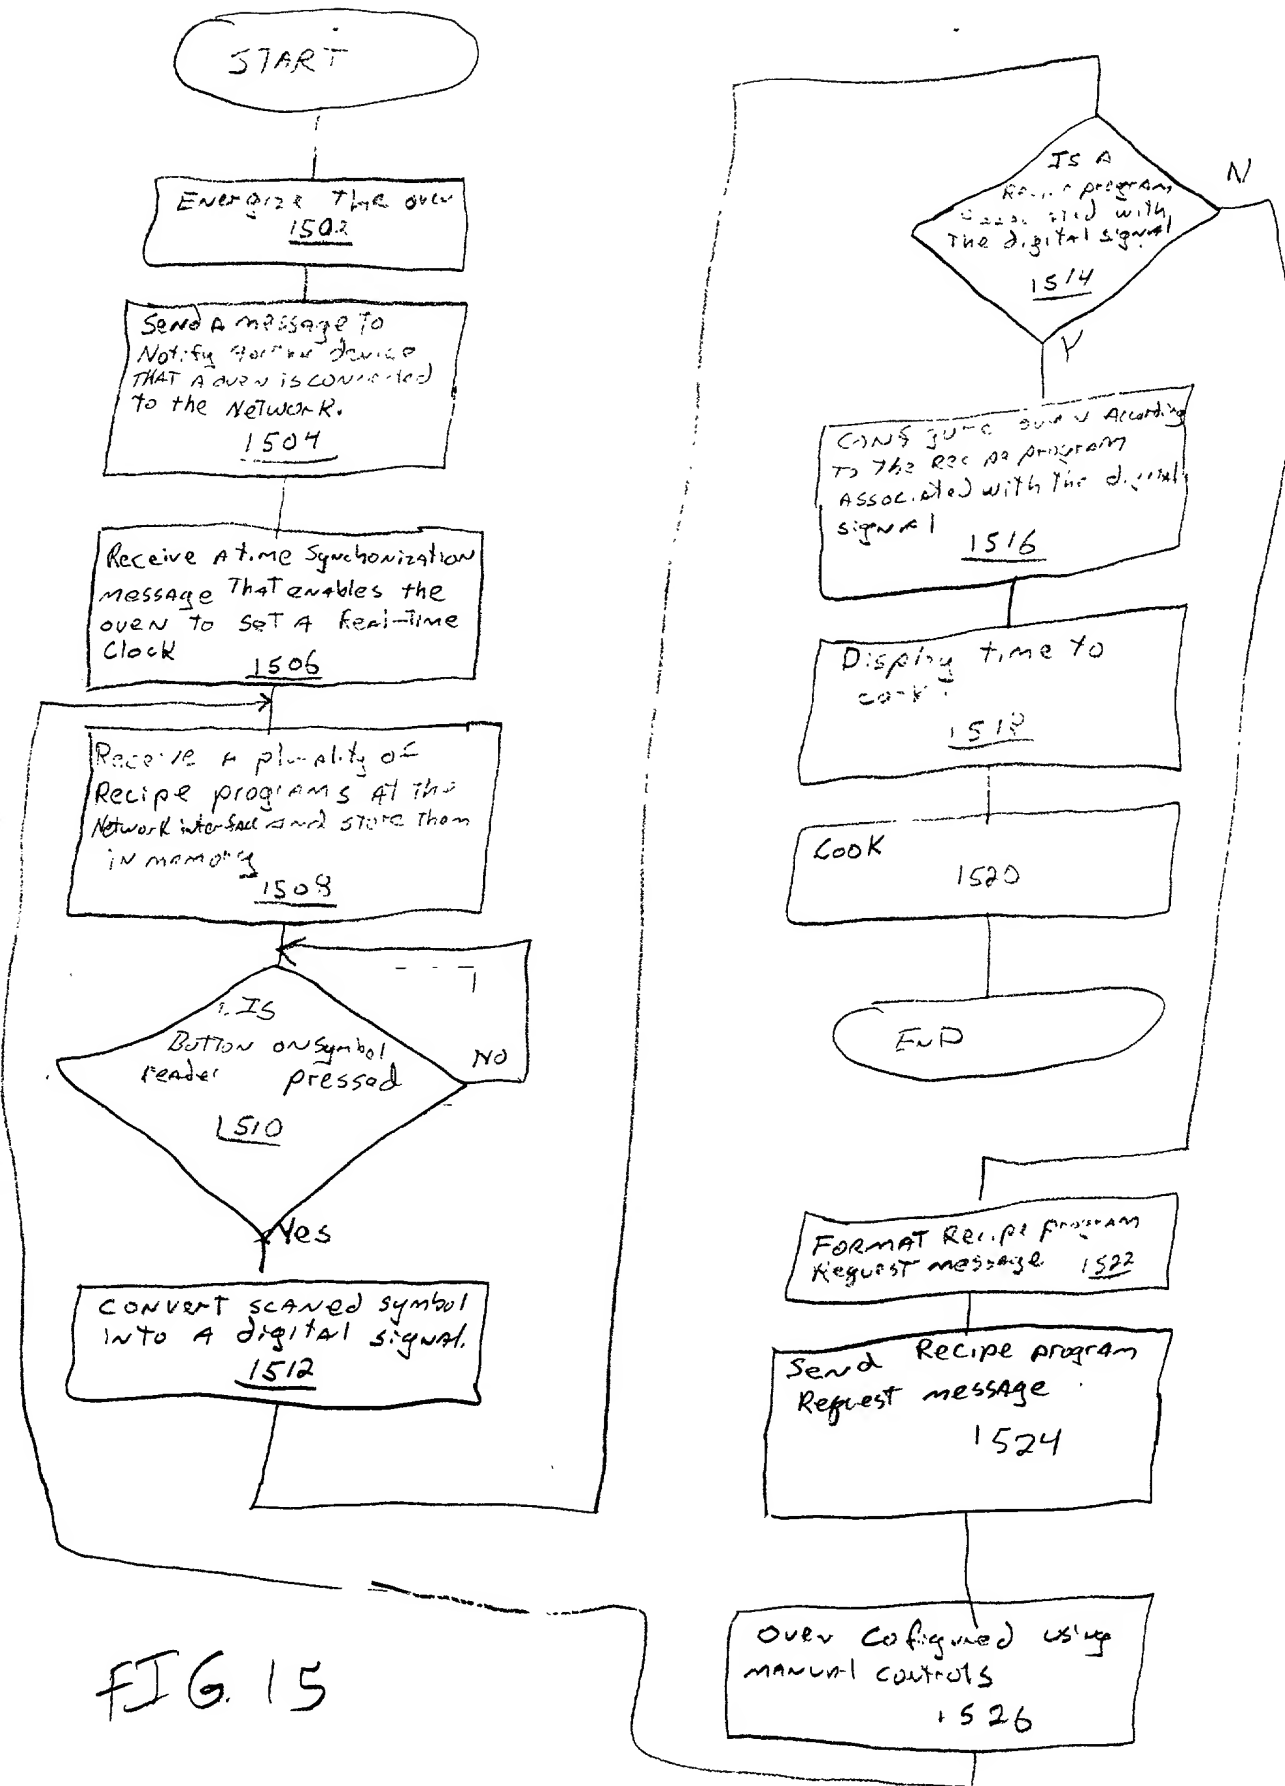 START
Energize the oven
1502
Send A message To
Notify device
THAT A oven is connected
to the Network.
1504
Receive A time Synchonization
message That enables the
oven to set A Real-Time
Clock
1506
Receive A plurality of
Recipe programs At The
Network interface and store them
in memory
1508
Is
Button on symbol
reader pressed
NO
1510
Yes
CONVERT SCANED symbol
INTO A digital signal.
1512
Is A
program
with
The digital signal
1514
N
Y
Configure oven According
To The Recipe program
Associated with the digital
signal
1516
Display time to
cook
1518
Cook
1520
END
FORMAT Recipe program
Request message 1522
Send Recipe program
Request message
1524
Oven Cofigured using
MANUAL controls
1526
FIG. 15